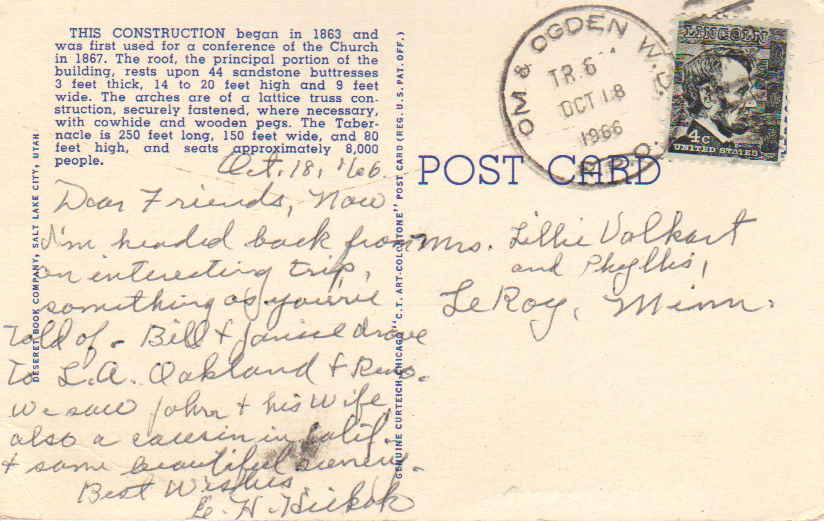 THIS CONSTRUCTION began in 1863 and
was first used for a conference of the Church
in 1867. The roof, the principal portion of the
building, rests upon 44 sandstone buttresses
3 feet thick, 14 to 20 feet high and 9 feet
wide. The arches are of a lattice truss con-
struction, securely fastened, where necessary,
with cowhide and wooden pegs. The Taber-
nacle is 250 feet long, 150 feet wide, and 80
feet high, and seats approximately 8,000
people.
Oct. 18, 1966.
Dear Friends, Now
I'm headed back from
an interesting trip,
something as you've
told of. Bill & Janice drove
to L.A. Oakland & Reno.
We saw John & his wife,
also a cousin in Calif.
& some beautiful scenery.
Best Wishes
E. H. Hickok
DESERET BOOK COMPANY, SALT LAKE CITY, UTAH
GENUINE CURTEICH, CHICAGO "C.T. ART-COLORTONE" POST CARD (REG. U.S. PAT. OFF.)
POST CARD
OM & OGDEN W.D.
TR. 6
OCT 18
1966
R.P.O.
LINCOLN
4c
UNITED STATES
Mrs. Lillie Volkart
and Phyllis,
LeRoy, Minn.